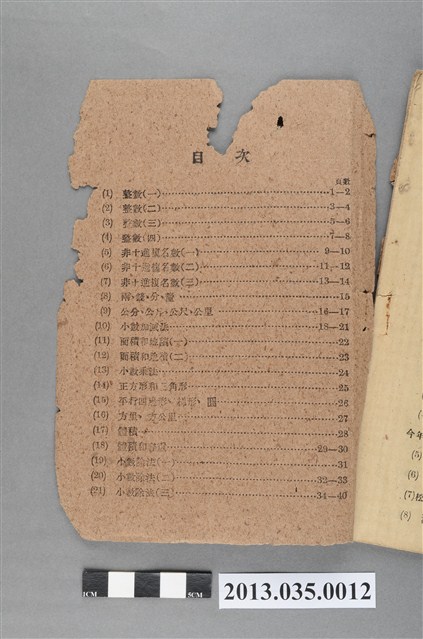 目次
頁數
(1) 整數(一)……1—2
(2) 整數(二)……3—4
(3) 整數(三)……5—6
(4) 整數(四)……7—8
(5) 非十進複名數(一)……9—10
(6) 非十進複名數(二)……11—12
(7) 非十進複名數(三)……13—14
(8) 兩·錢·分·釐……15
(9) 公分·公斤·公尺·公里……16—17
(10) 小數加減法……18—21
(11) 面積和地積(一)……22
(12) 面積和地積(二)……23
(13) 小數乘法……24
(14) 正方形和三角形……25
(15) 平行四邊形·梯形·圓……26
(16) 方里·方公里……27
(17) 體積……28
(18) 體積和容量……29—30
(19) 小數除法(一)……31
(20) 小數除法(二)……32—33
(21) 小數除法(三)……34—40
今年
(5)
(6)
(7)松
(8)
1CM 5CM
2013.035.0012